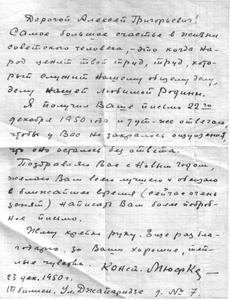 Дорогой Алексей Григорьевич!
Самое большое счастье в жизни
советского человека, - это когда на-
род ценит твой труд, труд, кото-
рый служит нашему общему делу,
делу нашей любимой Родины.
Я получил Ваше письмо 22го
декабря 1950 года и тут-же отвечаю
чтобы у Вас не закралось ощущения,
что оно осталось без ответа.
Поздравляю Вас с Новым годом,
желаю Вам всего лучшего и обещаю
в ближайшее время (сейчас очень
занят) написать Вам более подроб-
ное письмо.
Жму крепко руку. Еще раз бла-
годарю за Ваши хорошие, теп-
лые чувства.
Конст.
23 дек. 1950г.
Тбилиси, Ул. Джапаридзе д. № 7.